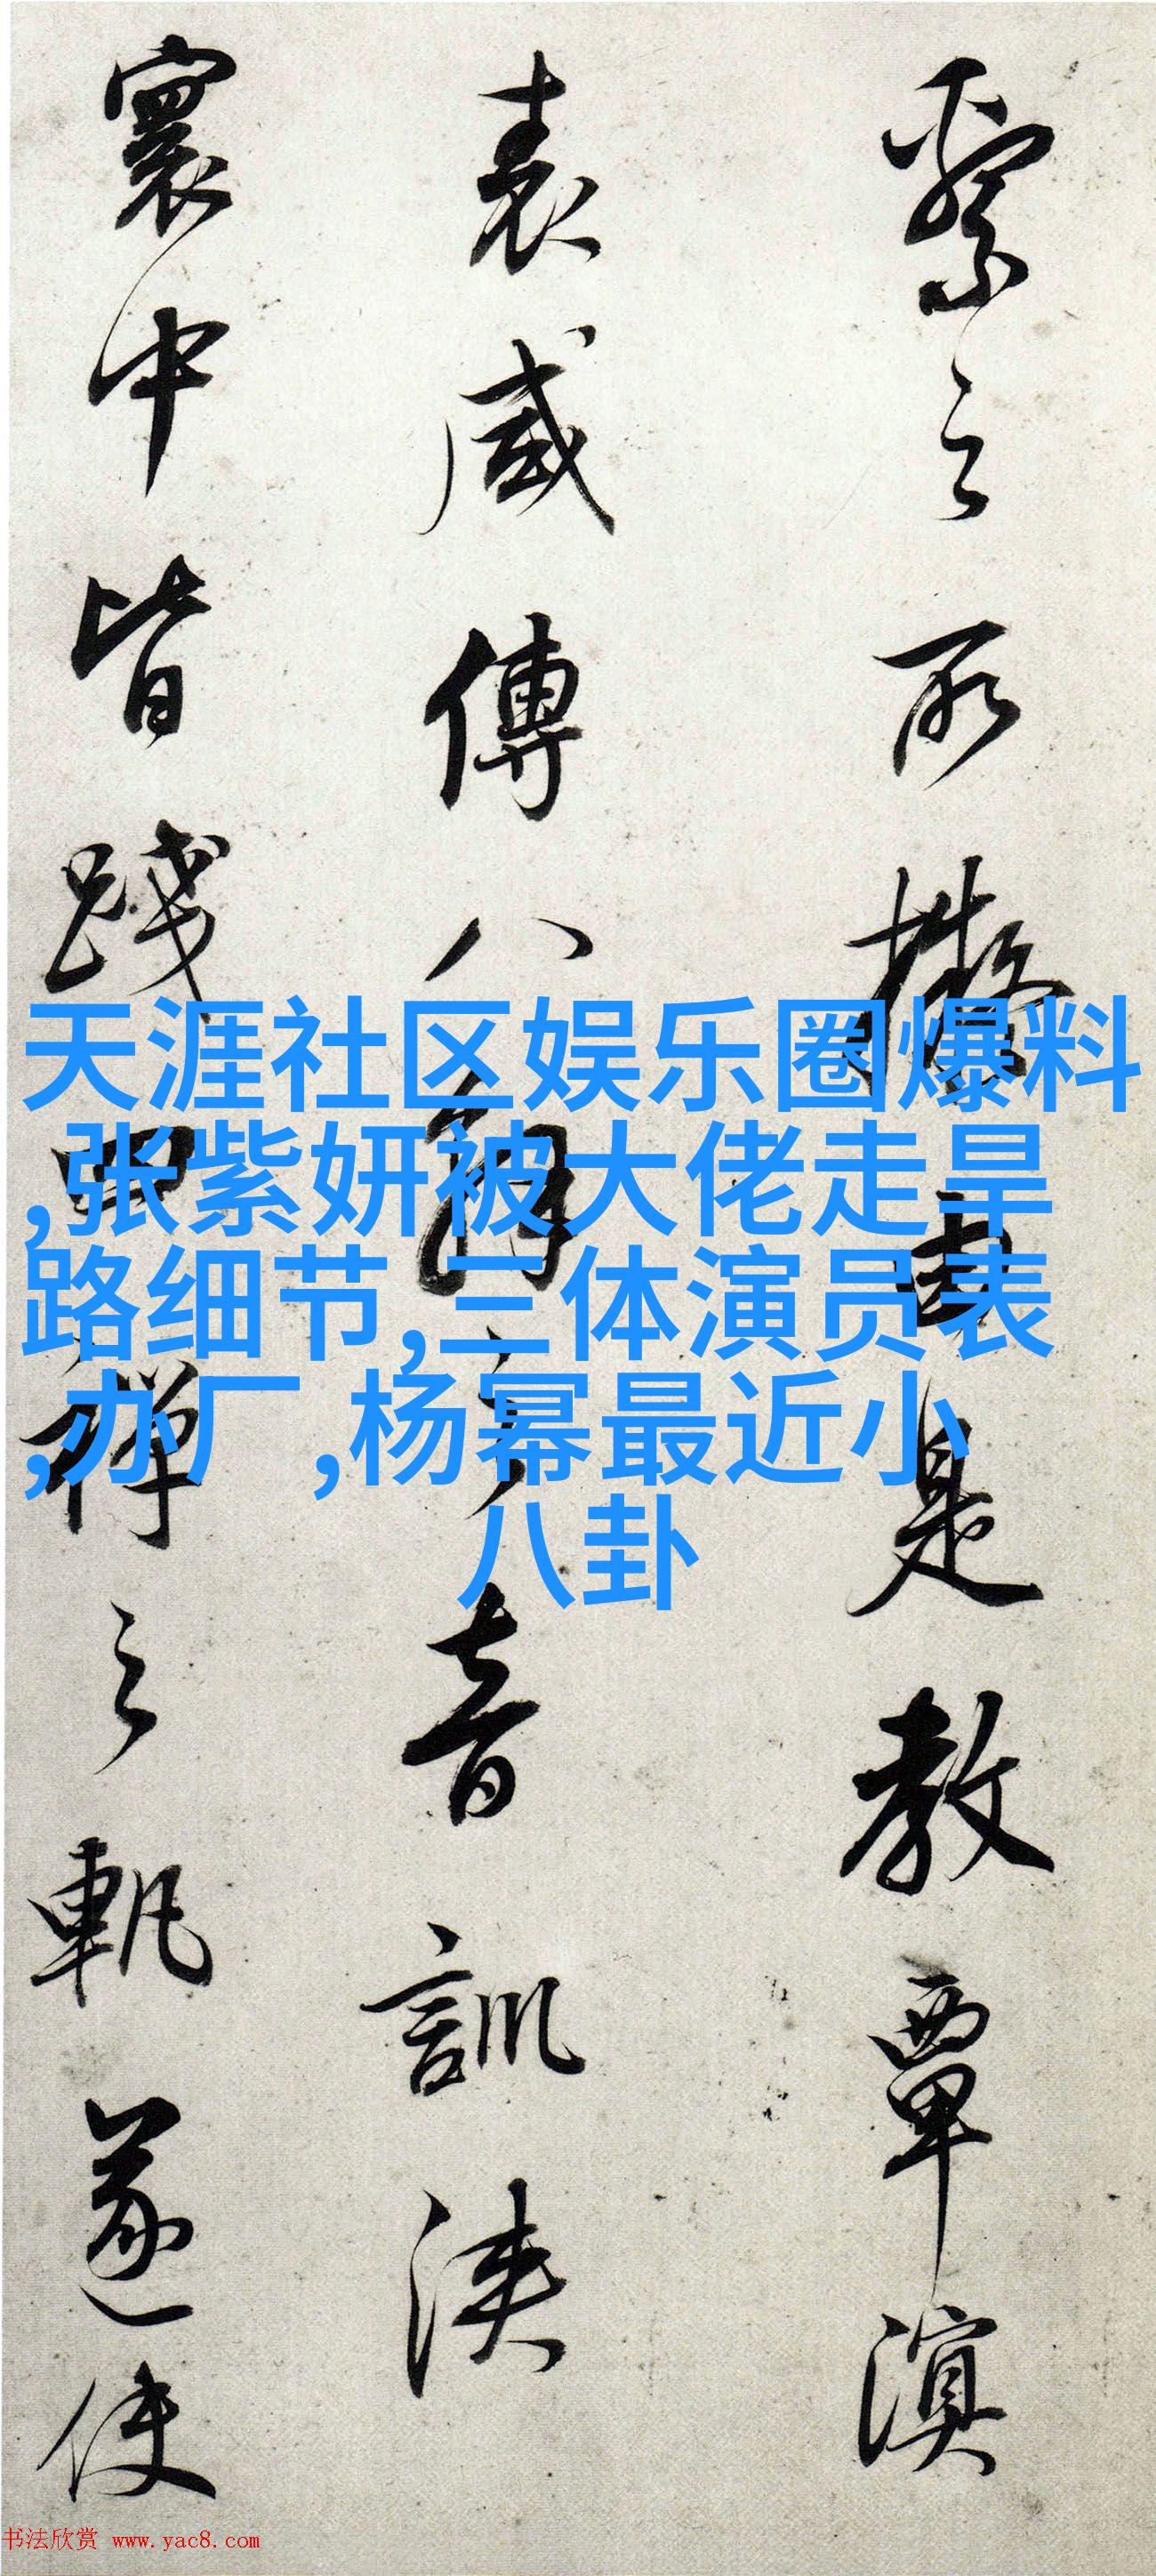 繄之所撥由是教覃溟
表咸傳八解之音訓浹
寰中皆踐四禪之軌遂使
天涯社区娱乐圈爆料
,张紫妍被大佬走旱
路细节,三体演员表
,办厂,杨幂最近小
八卦
书法欣赏 www.yac8.com